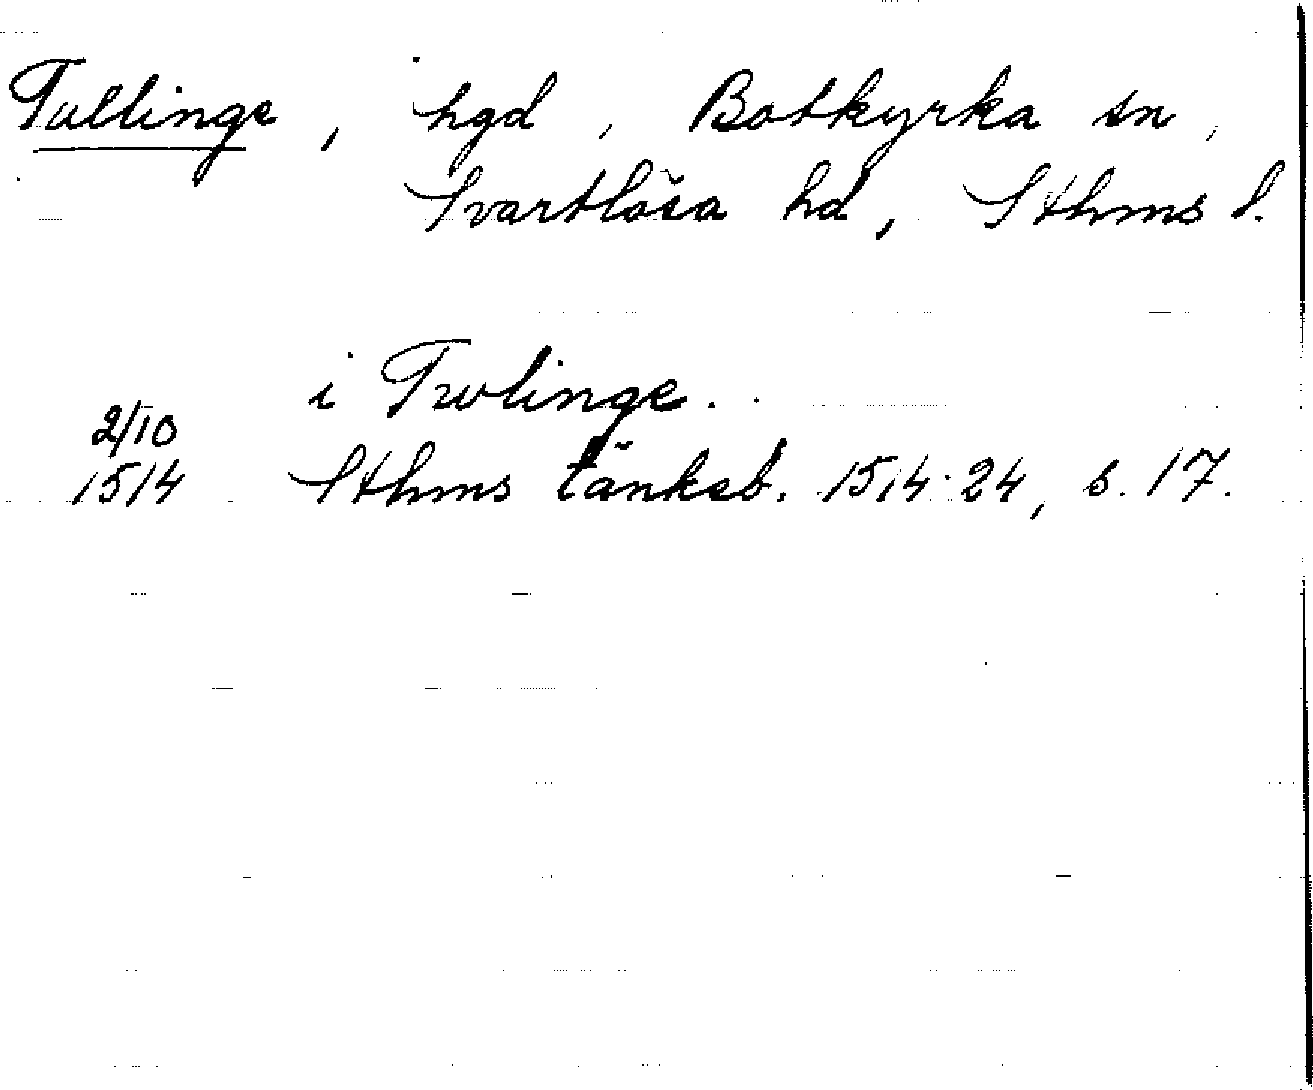 Tullinge, hgd, Botkyrka sn,
Svartlösa hd, Sthms l.
i Twlinge..
2/10
1514 Sthms tänkeb. 1514-24, s. 17.